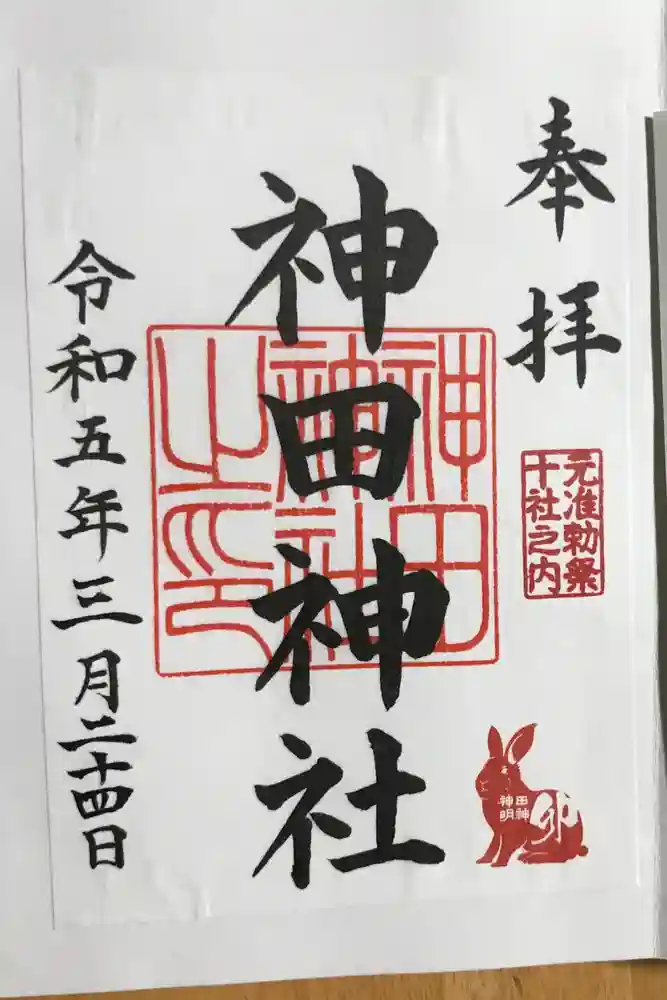 奉拝
元准勅祭
十社之内
田神
神明
卯
神田神社
神田
神社
之印
令和五年三月二十四日